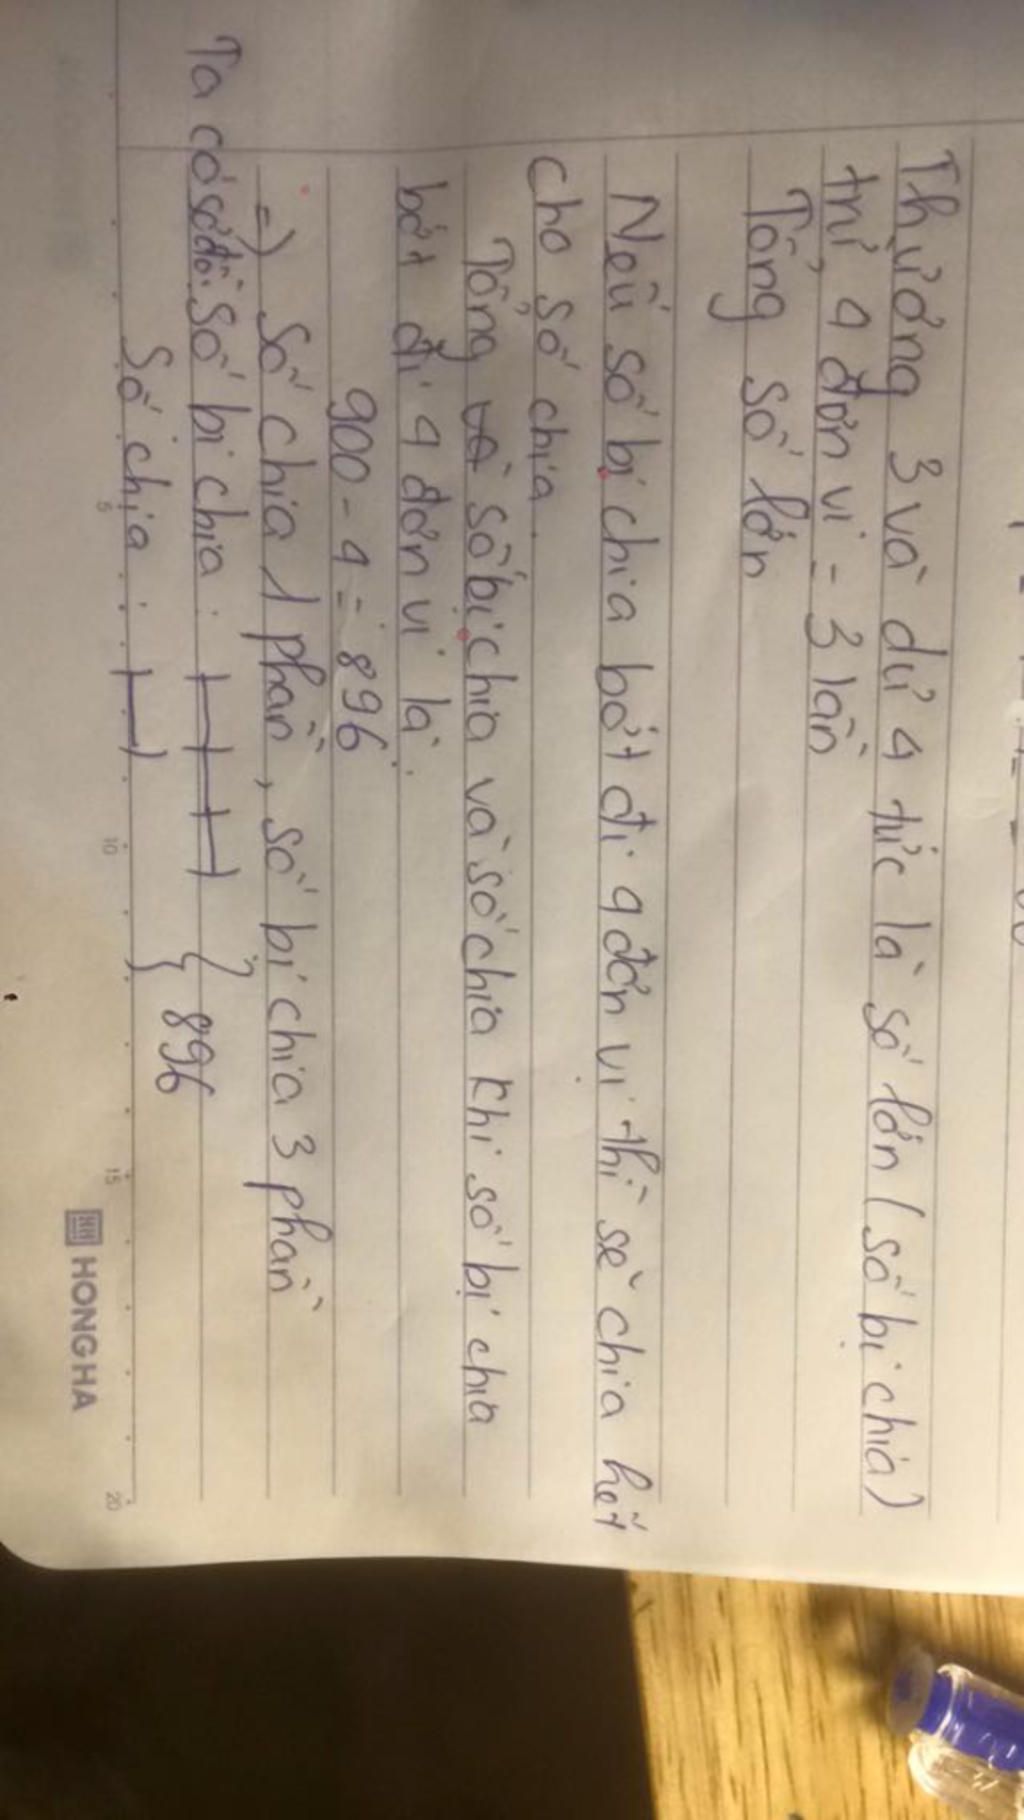 Thương 3 và dư 4 tức là số lớn (số bị chia)
trừ 4 đơn vị = 3 lần
Tổng số lớn
Nếu số bị chia bớt đi 4 đơn vị thì sẽ chia hết
cho số chia.
Tổng số bị chia và số chia khi số bị chia
bớt đi 4 đơn vị là:
900 - 4 = 896
=) Số chia 1 phần, số bị chia 3 phần
Ta có sơ đồ: Số bị chia:
Số chia:
896
5 10 15 20
HONG HA